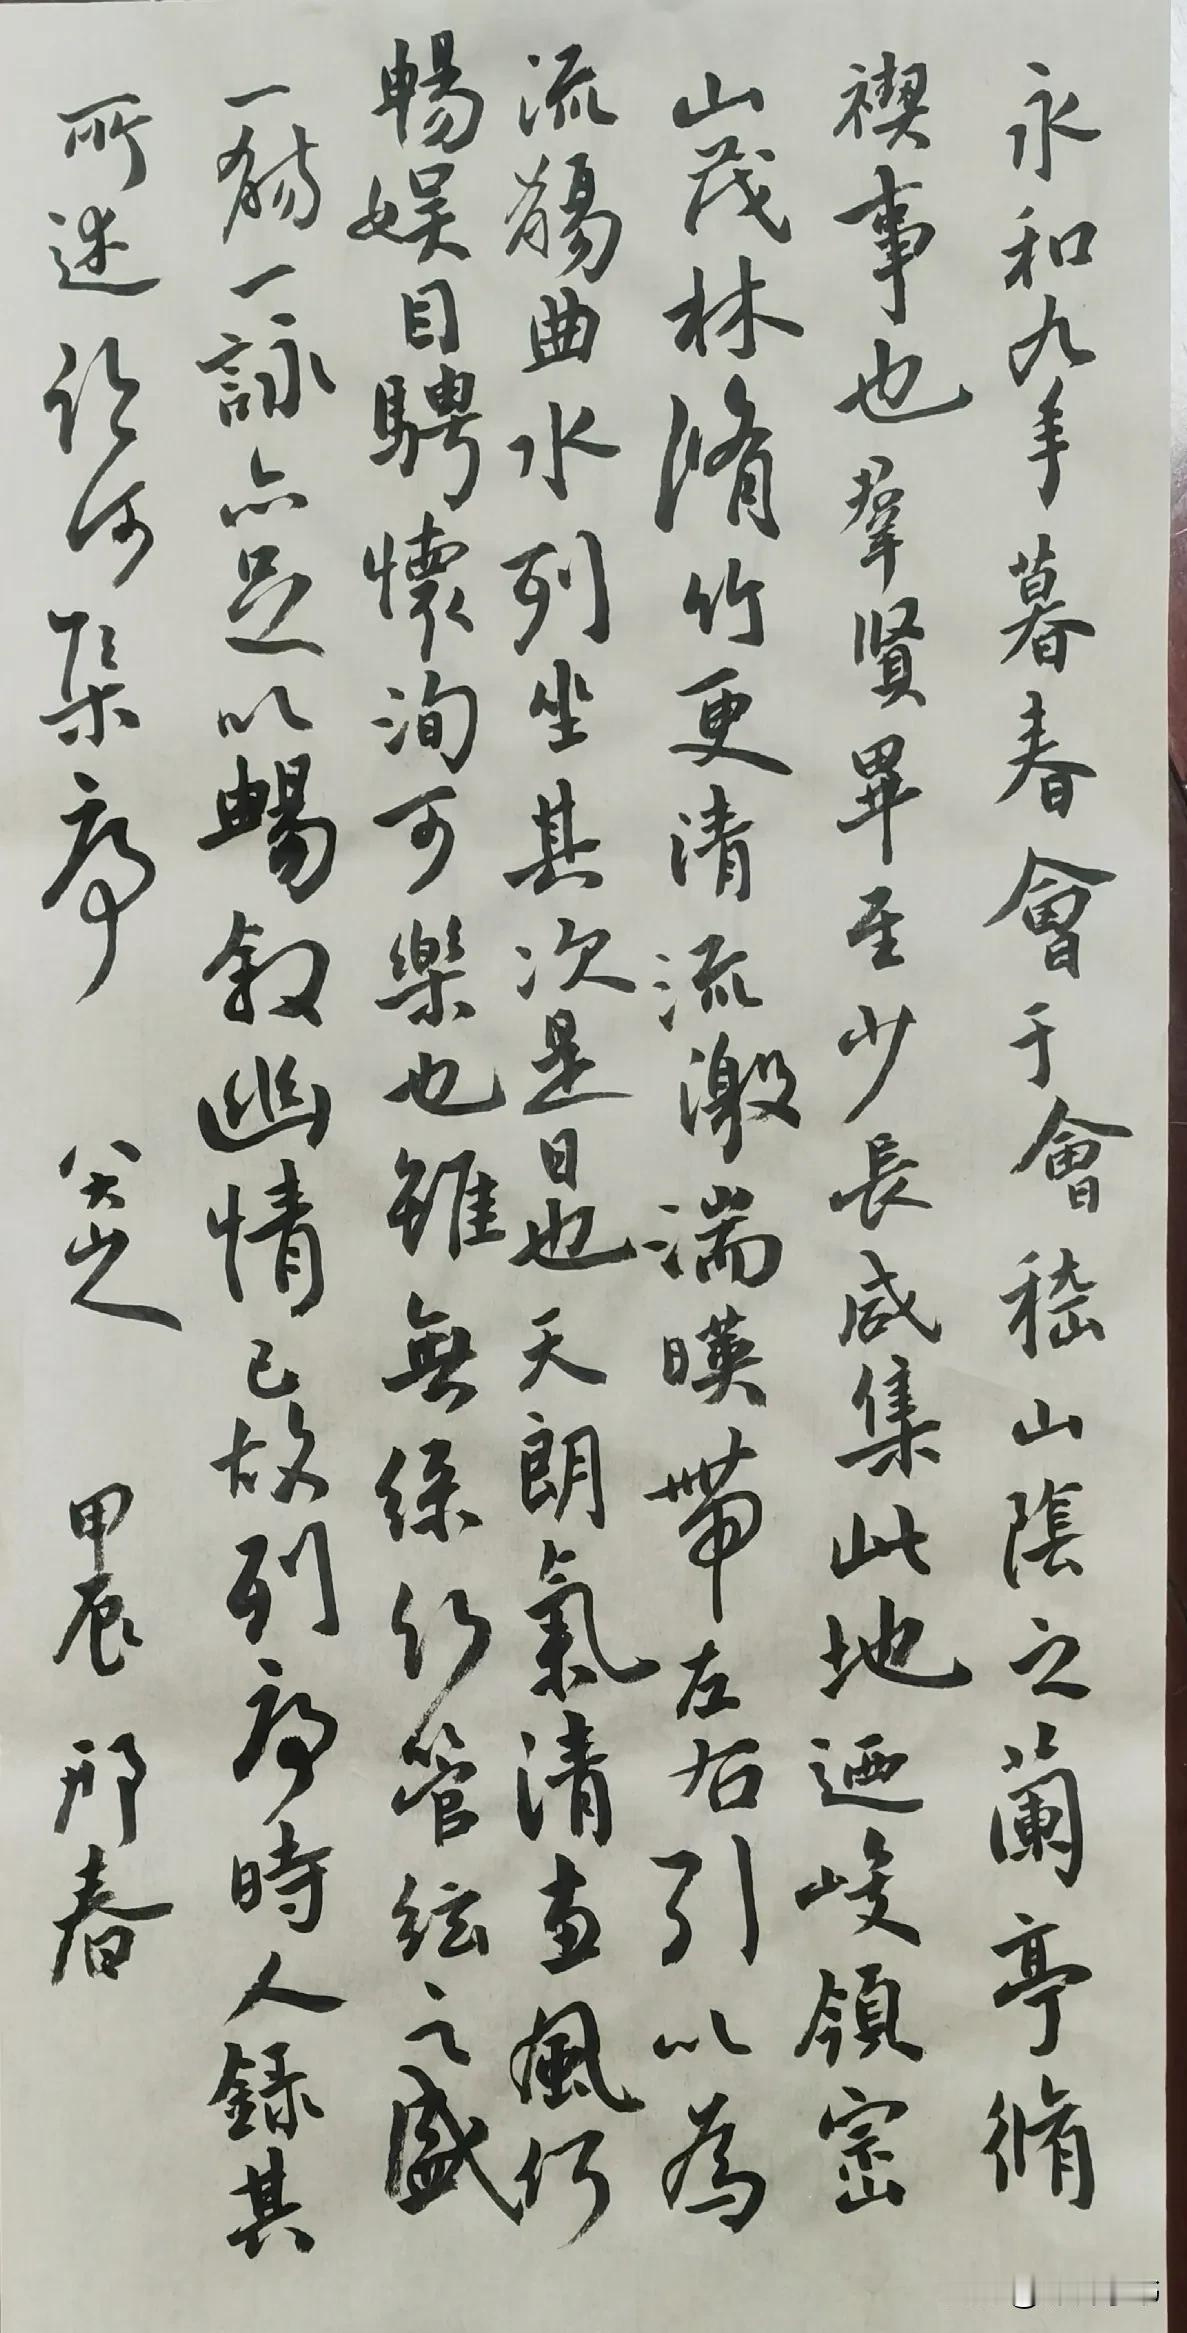 永和九年暮春會于會嵇山陰之蘭亭脩
禊事也羣賢畢至少長咸集此地迺峻領崇
山茂林脩竹更清流激湍暎帶左右引以為
流觴曲水列坐其次是日也天朗氣清惠風仍
暢娛目騁懷洵可樂也雖無絲竹管絃之盛
一觴一詠亦足以暢敘幽情已故列序時人錄其
所述 臨河集序 八大山人 甲辰 春